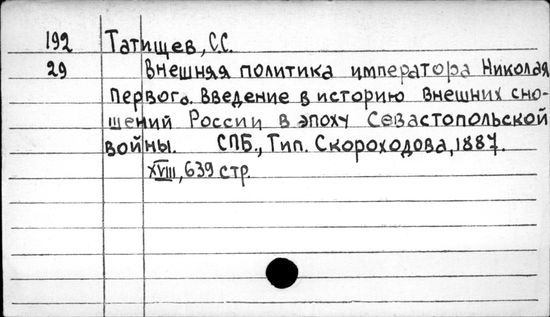 192 Татищев, С.С.
29 Внешняя политика императора Николая
Первого. Введение в историю внешних сно-
шений России в эпоху Севастопольской
войны. СПБ., Тип. Скороходова, 1887.
XVIII, 639 стр.